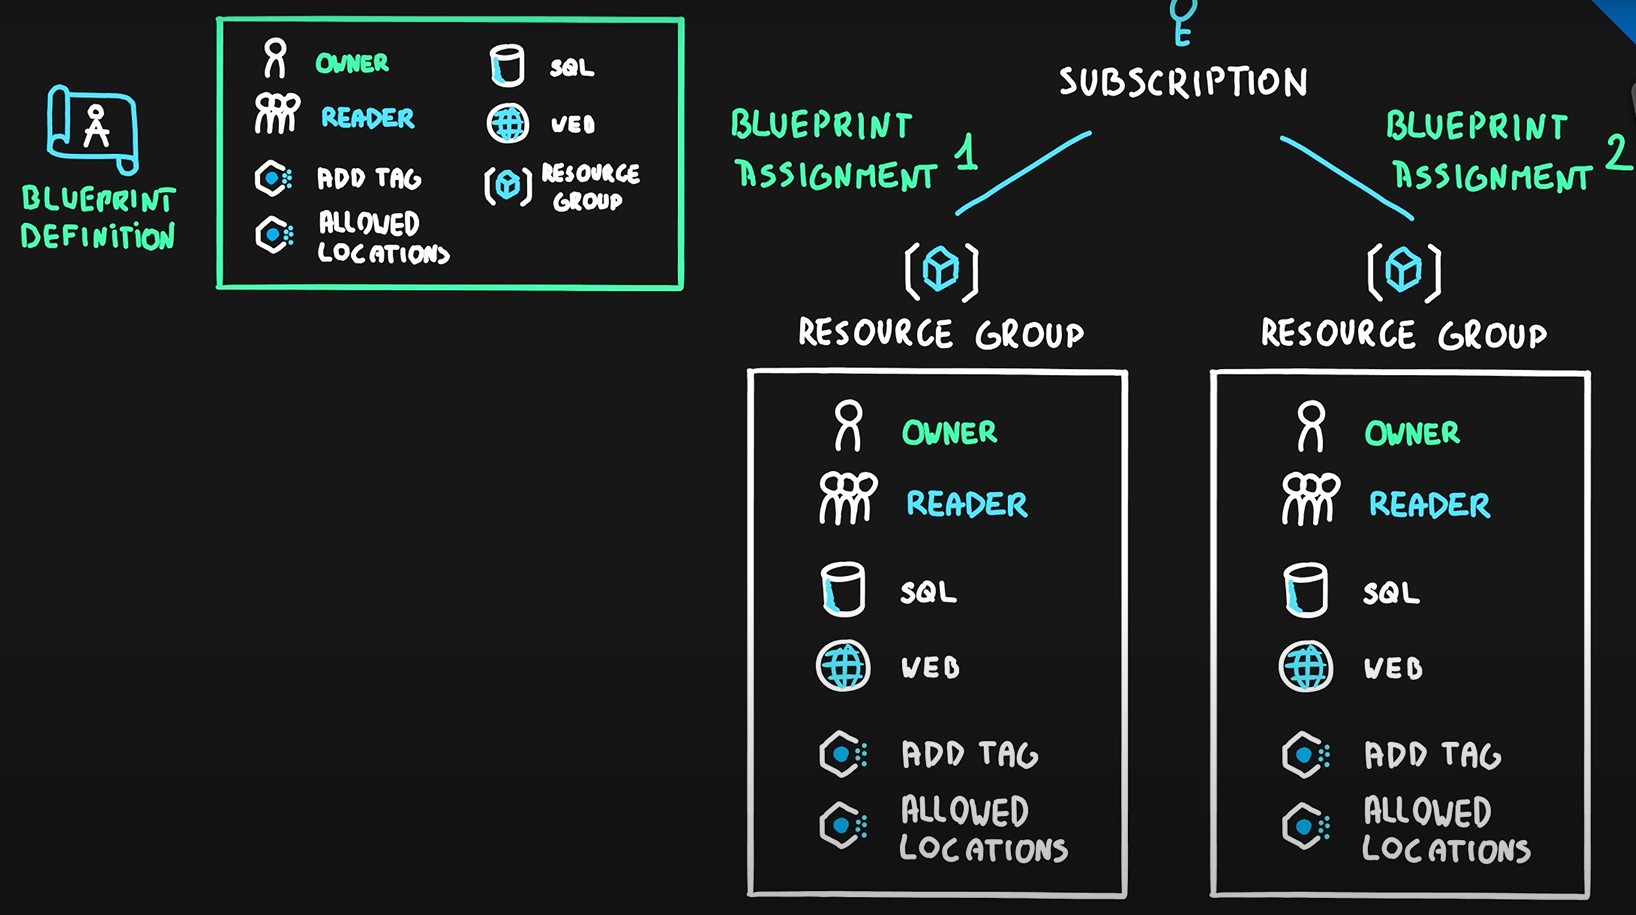 BLUEPRINT
DEFINITION
OWNER
READER
ADD TAG
ALLOWED
LOCATIONS
SQL
WEB
RESOURCE
GROUP
SUBSCRIPTION
BLUEPRINT
ASSIGNMENT 1
BLUEPRINT
ASSIGNMENT 2
RESOURCE GROUP
OWNER
READER
SQL
WEB
ADD TAG
ALLOWED
LOCATIONS
RESOURCE GROUP
OWNER
READER
SQL
WEB
ADD TAG
ALLOWED
LOCATIONS